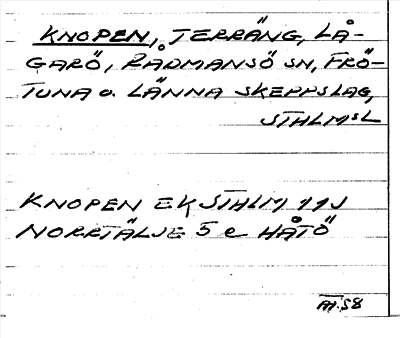 KNOPEN, TERRÄNG, LÅ-
GARÖ, RÅDMANSÖ SN, FRÖ-
TUNA o. LÄNNA SKEPPSLAG,
STHLMSL
KNOPEN EK STHLM 11J
NORRTÄLJE 5 e HÅTÖ
AI.58